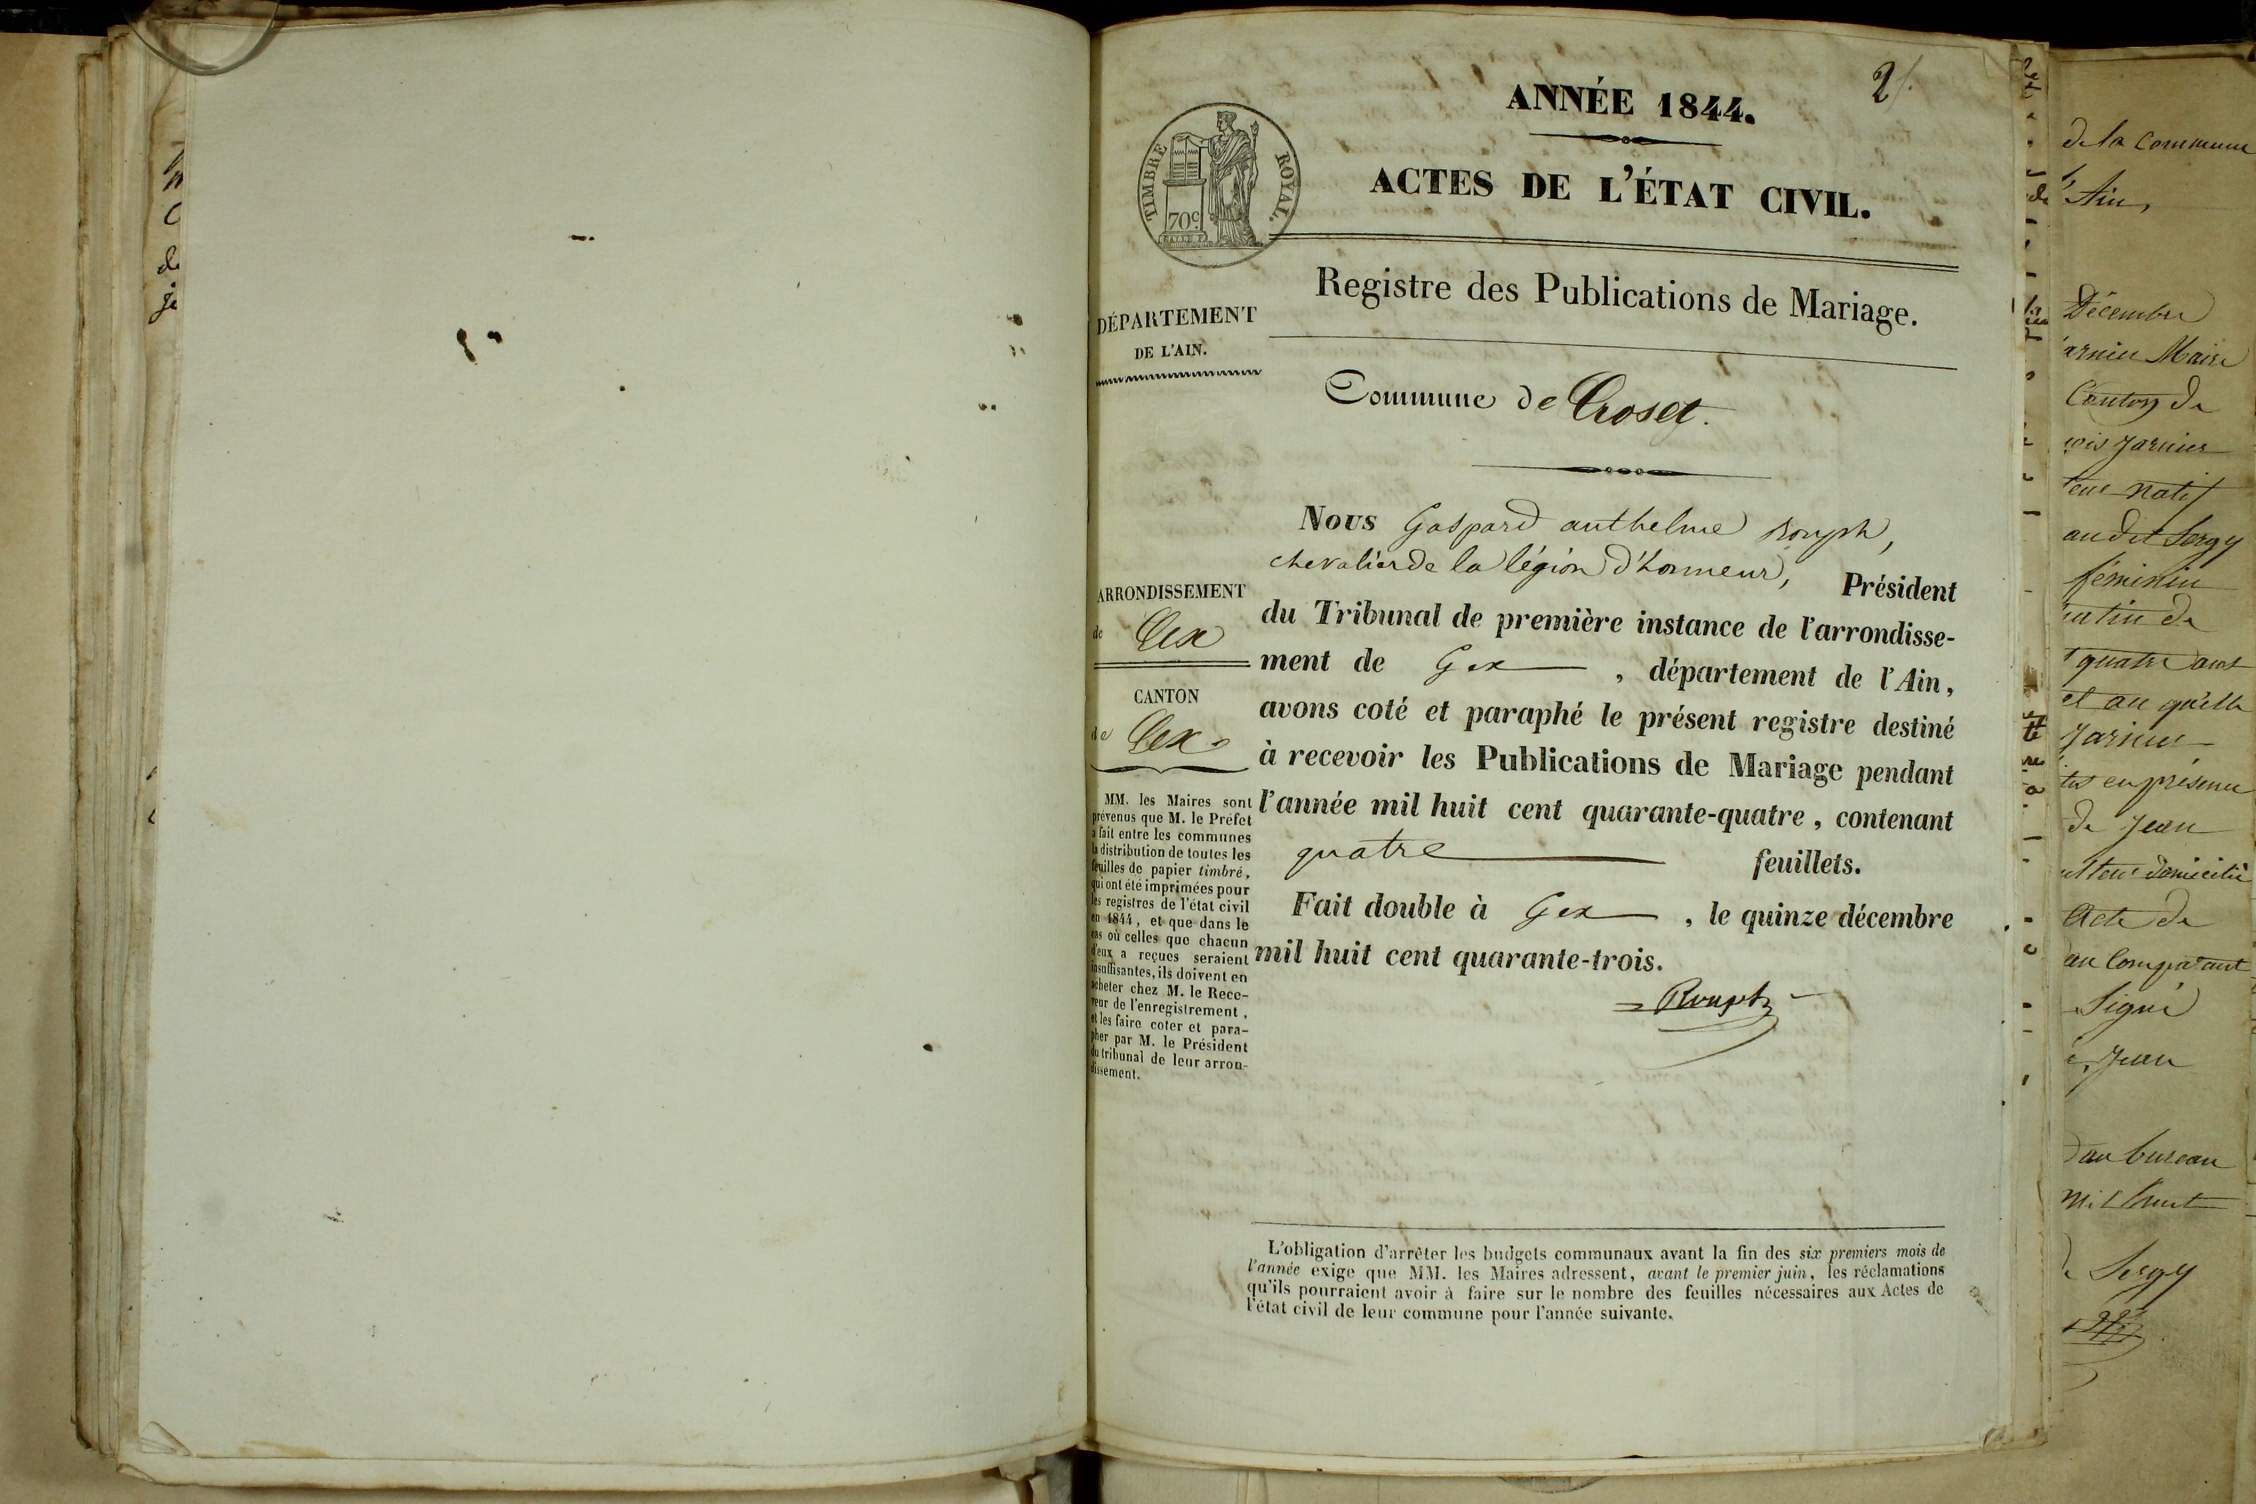 2
ANNÉE 1844.
TIMBRE ROYAL.
70c
ACTES DE L'ÉTAT CIVIL.
Registre des Publications de Mariage.
DÉPARTEMENT
DE L'AIN.
Commune de Croset.
Nous Gaspard anthelme Rouph,
chevalier de la légion d'honneur, Président
du Tribunal de première instance de l'arrondisse-
ment de Gex, département de l'Ain,
avons coté et paraphé le présent registre destiné
à recevoir les Publications de Mariage pendant
l'année mil huit cent quarante-quatre, contenant
quatre feuillets.
Fait double à Gex, le quinze décembre
mil huit cent quarante-trois.
Rouph
ARRONDISSEMENT
de Gex
CANTON
de Gex.
MM. les Maires sont
prévenus que M. le Préfet
a fait entre les communes
la distribution de toutes les
feuilles de papier timbré,
qui ont été imprimées pour
les registres de l'état civil
en 1844, et que dans le
cas où celles que chacun
d'eux a reçues seraient
insuffisantes, ils doivent en
acheter chez M. le Rece-
veur de l'enregistrement,
et les faire coter et para-
pher par M. le Président
du tribunal de leur arron-
dissement.
L'obligation d'arrêter les budgets communaux avant la fin des six premiers mois de
l'année exige que MM. les Maires adressent, avant le premier juin, les réclamations
qu'ils pourraient avoir à faire sur le nombre des feuilles nécessaires aux Actes de
l'état civil de leur commune pour l'année suivante.
de la commune
Ain,
Décembre
Maire
Canton de
Jarnier
natif
au dit Sergy
féminin
de
quatre ans
et au qu'elle
Jarnier
en présence
de Jean
domicilié
Acte de
Comparant
Signé
Jean
au bureau
mil huit
Sergy